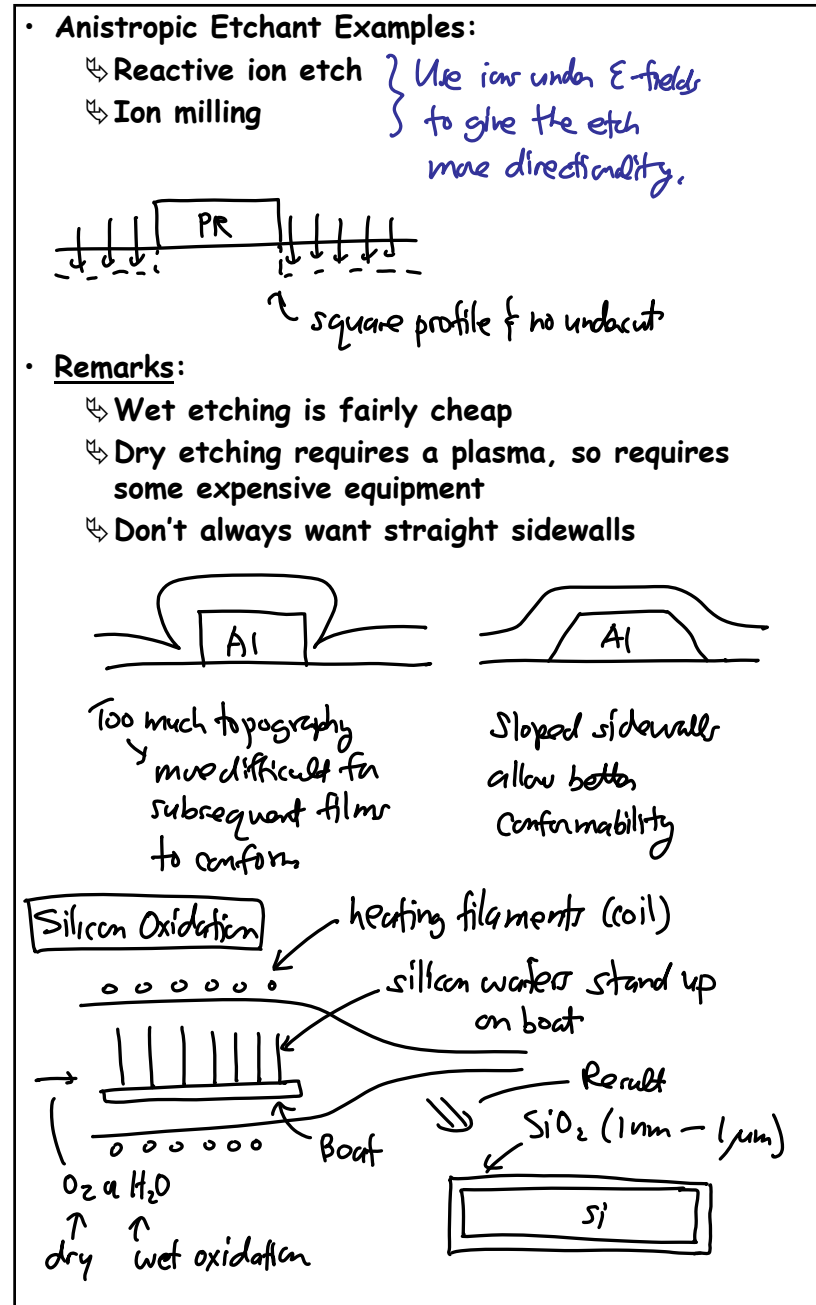 · Anistropic Etchant Examples:
↳ Reactive ion etch
↳ Ion milling
Use ions under E-fields
to give the etch
more directionality.
PR
square profile & no undercut
· Remarks:
↳ Wet etching is fairly cheap
↳ Dry etching requires a plasma, so requires
some expensive equipment
↳ Don't always want straight sidewalls
Al
Al
Too much topography
more difficult for
subsequent films
to conform
Sloped sidewalls
allow better
Conformability
Silicon Oxidation
heating filaments (coil)
silicon wafers stand up
on boat
Result
SiO₂ (1nm – 1μm)
Boat
Si
O₂ or H₂O
dry wet oxidation